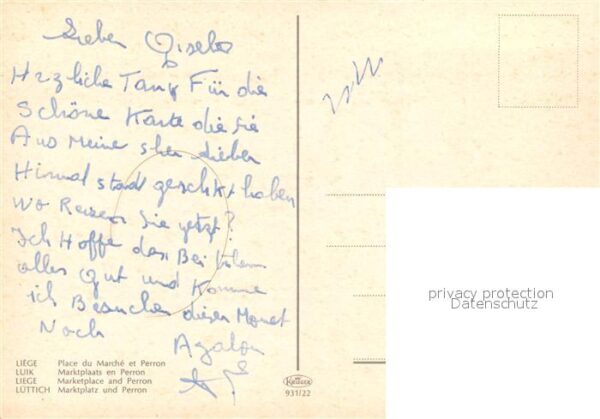 Lieber Gisela
Herzliche Tank Für die
Schöne Karte die Sie
Aus Meine lieben
Himal stadt geschikt haben
Wo Reizen Sie jetzt?
Ich Hoffe das Bei
alles Gut und Komme
ich Besuchen diesen Monat
Noch
LIÈGE Place du Marché et Perron
LUIK Marktplaats en Perron
LIEGE Marketplace and Perron
LÜTTICH Marktplatz und Perron
Krüger
931/22
privacy protection
Datenschutz